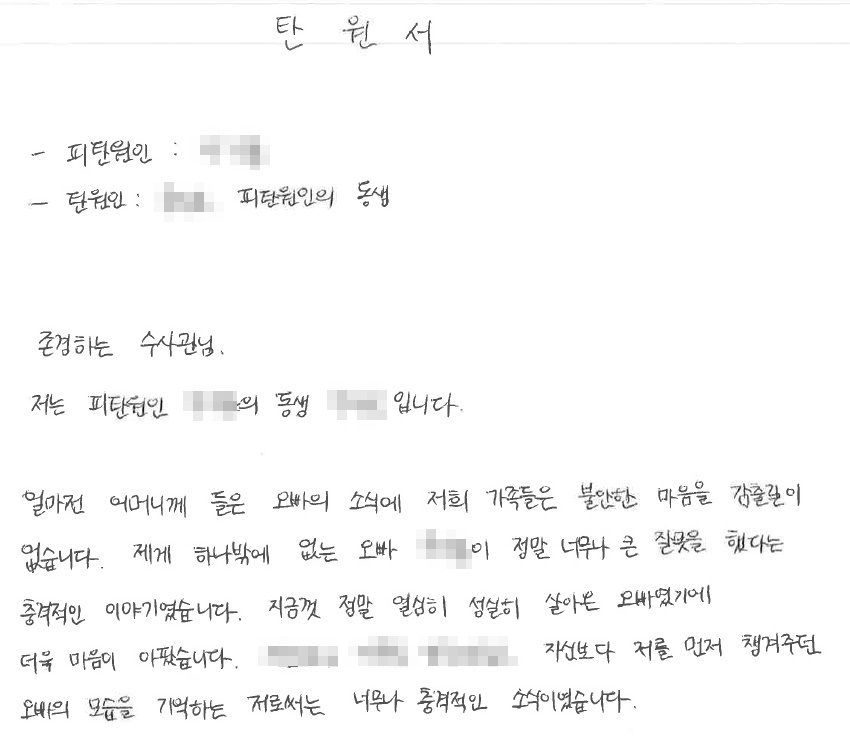 탄 원 서
- 피탄원인 :
- 탄원인 : 피탄원인의 동생
존경하는 수사관님.
저는 피탄원인 의 동생 입니다.
얼마전 어머니께 들은 오빠의 소식에 저희 가족들은 불안한 마음을 감출길이
없습니다. 제게 하나밖에 없는 오빠 이 정말 너무나 큰 잘못을 했다는
충격적인 이야기였습니다. 지금껏 정말 열심히 성실히 살아온 오빠였기에
더욱 마음이 아팠습니다. 자신보다 저를 먼저 챙겨주던
오빠의 모습을 기억하는 저로써는 너무나 충격적인 소식이였습니다.